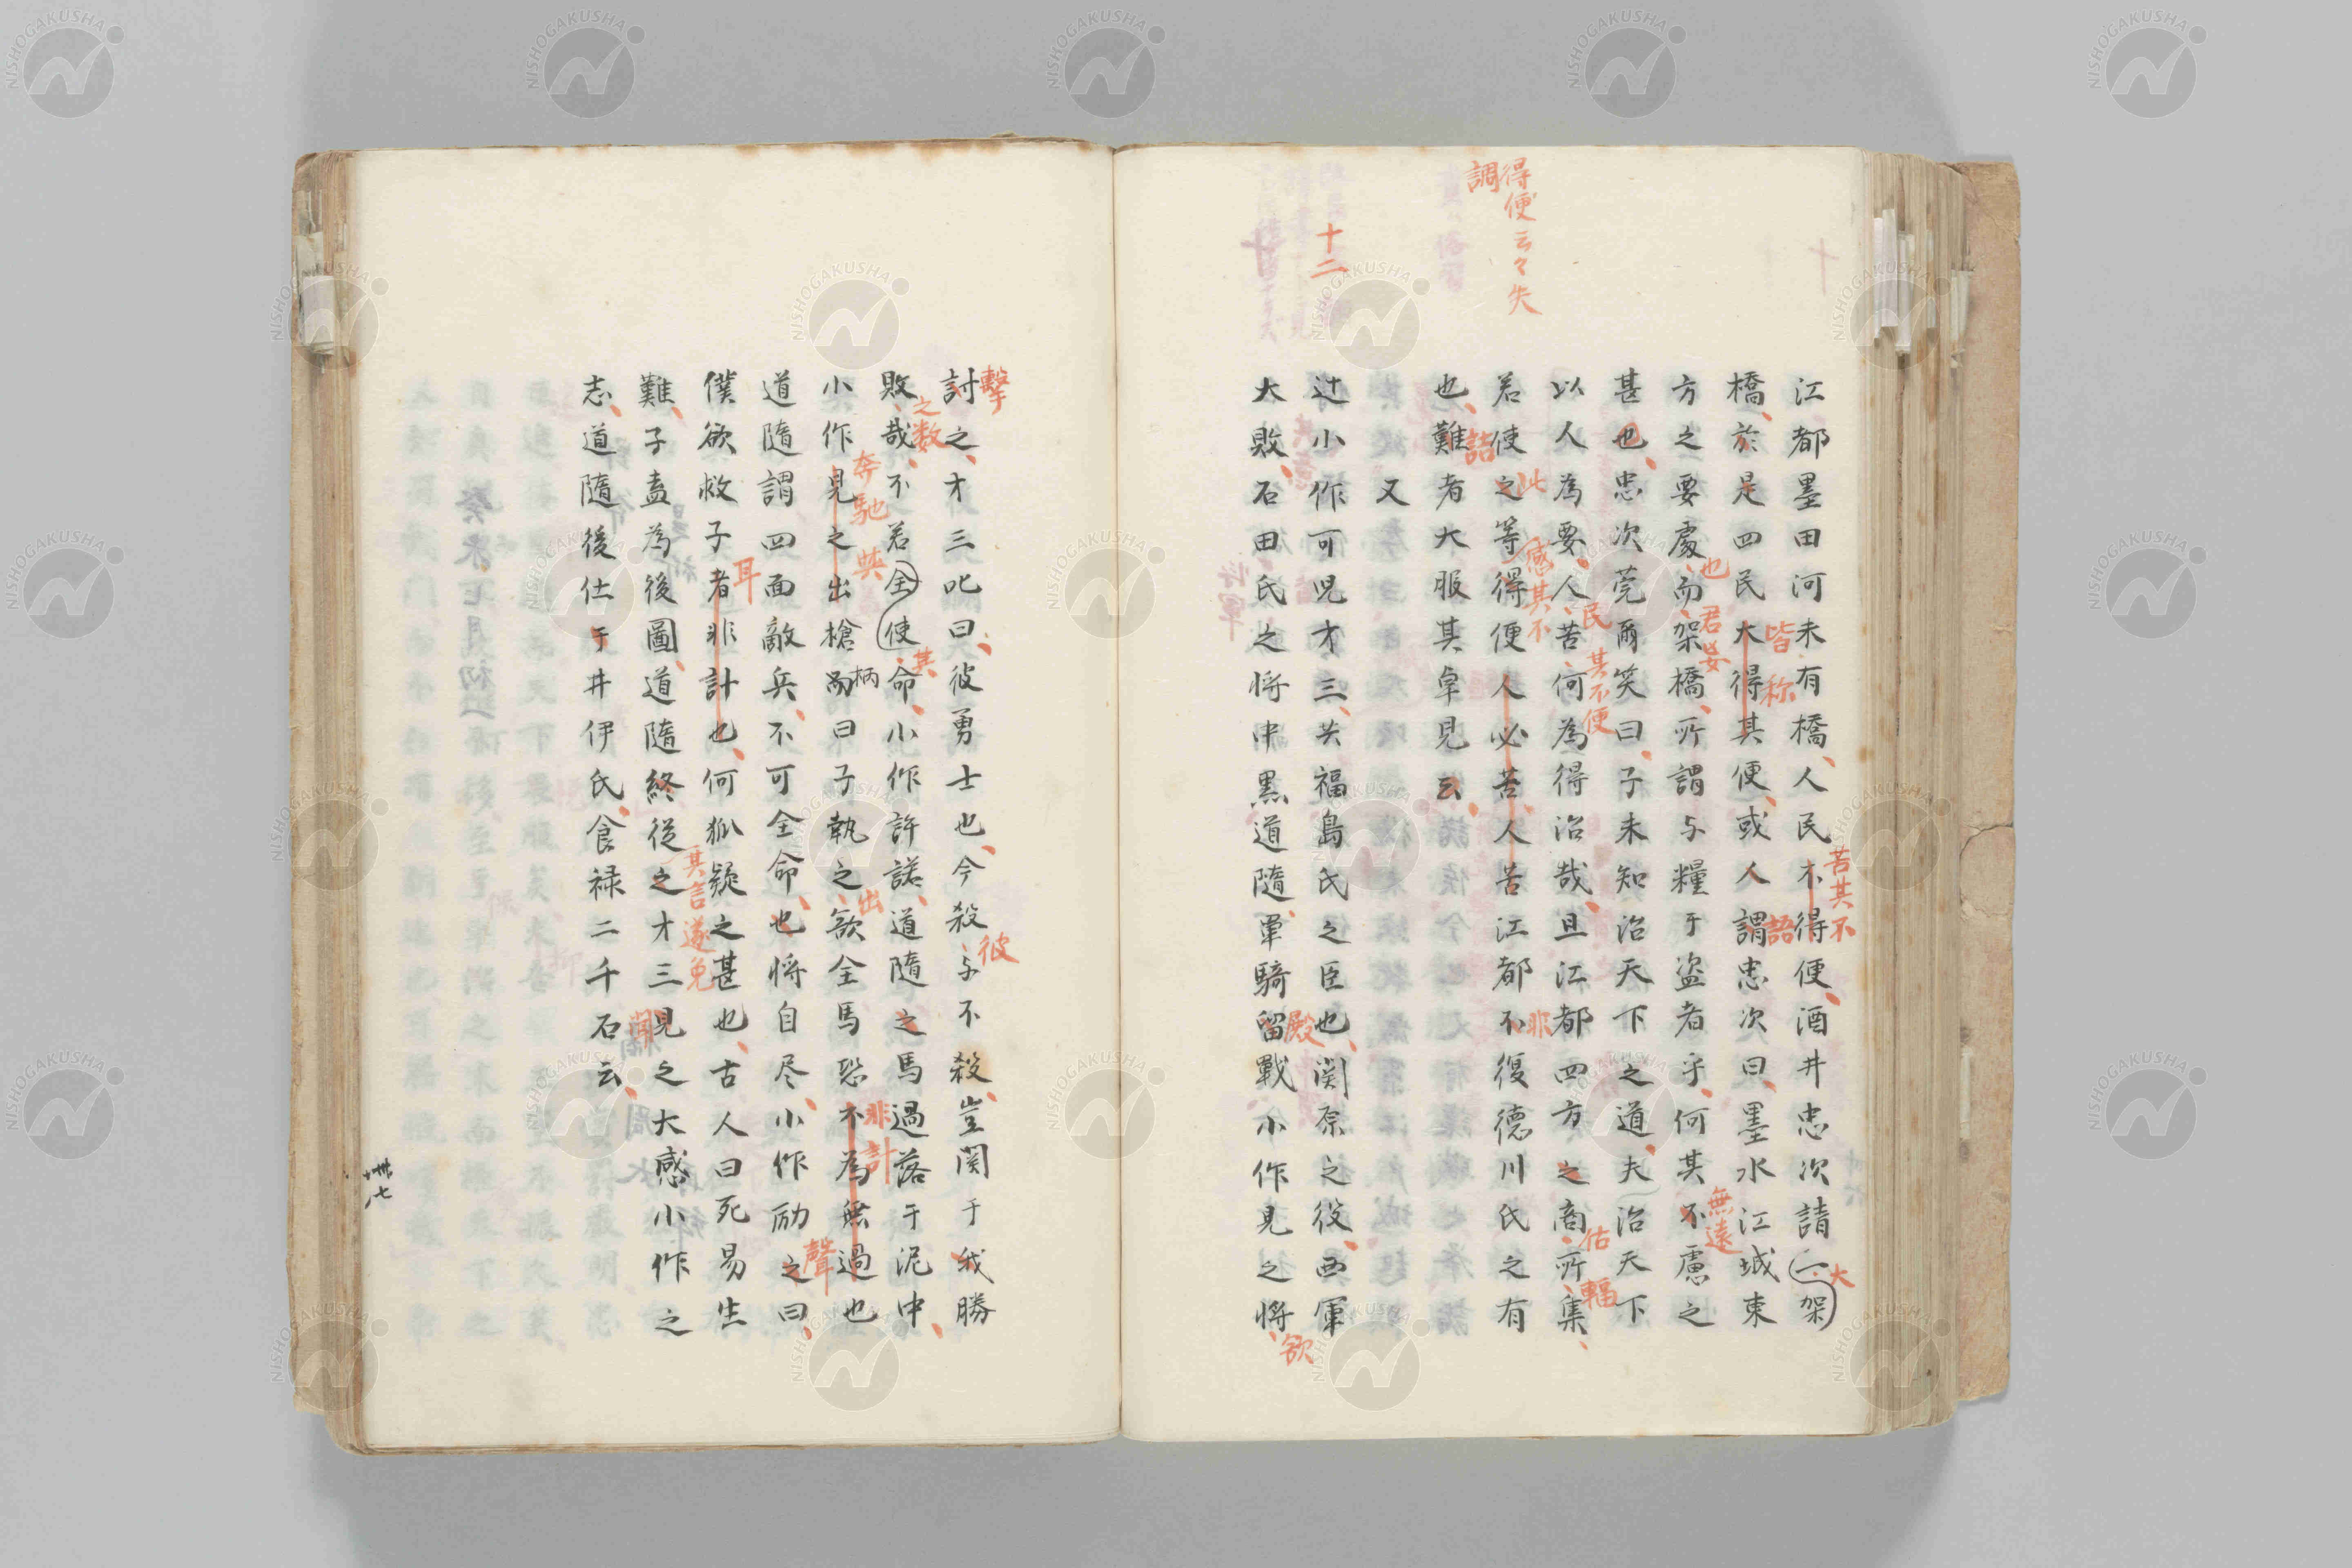 得便云々失
調
十二
江都墨田河未有橋人民不得便酒井忠次請一架
苦其不
大
橋於是四民大得其便或人謂忠次曰墨水江城東
皆称
語
方之要處而架橋所謂与糧于盗者乎何其不慮之
也
君果
無遠
甚也忠次莞爾笑曰子未知治天下之道夫治天下
以人為要人苦何為得治哉且江都四方之商所集
民
其不便
估
輻
若使之等得便人必苦人苦江都不復德川氏之有
此
感其不
非
也難者大服其卓見云
詰
又
辻小作可児才三共福島氏之臣也関原之役西軍
大敗石田氏之将中黒道隨単騎留戰小作見之将
殿
欲
討之才三叱曰彼勇士也今殺与不殺豈関于我勝
擊
彼
敗哉不若全使命小作許諾道隨之馬過落于泥中
之数
其
小作見之出槍而曰子執之欲全馬恐不為無過也
奔馳
與
柄
出
非計
道隨謂四面敵兵不可全命也将自尽小作励之曰
聲
僕欲救子者非計也何狐疑之甚也古人曰死易生
耳
難子盍為後圖道隨終從之才三見之大感小作之
其言遂免
聞
志道隨後仕于井伊氏食禄二千石云
卅七
NISHOGAKUSHA